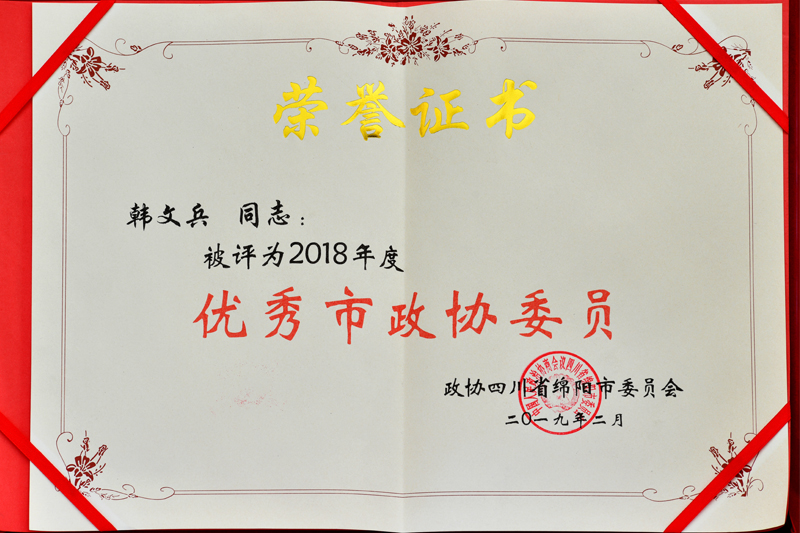 荣誉证书
韩文兵 同志：
被评为2018年度
优秀市政协委员
政协四川省绵阳市委员会
二〇一九年二月